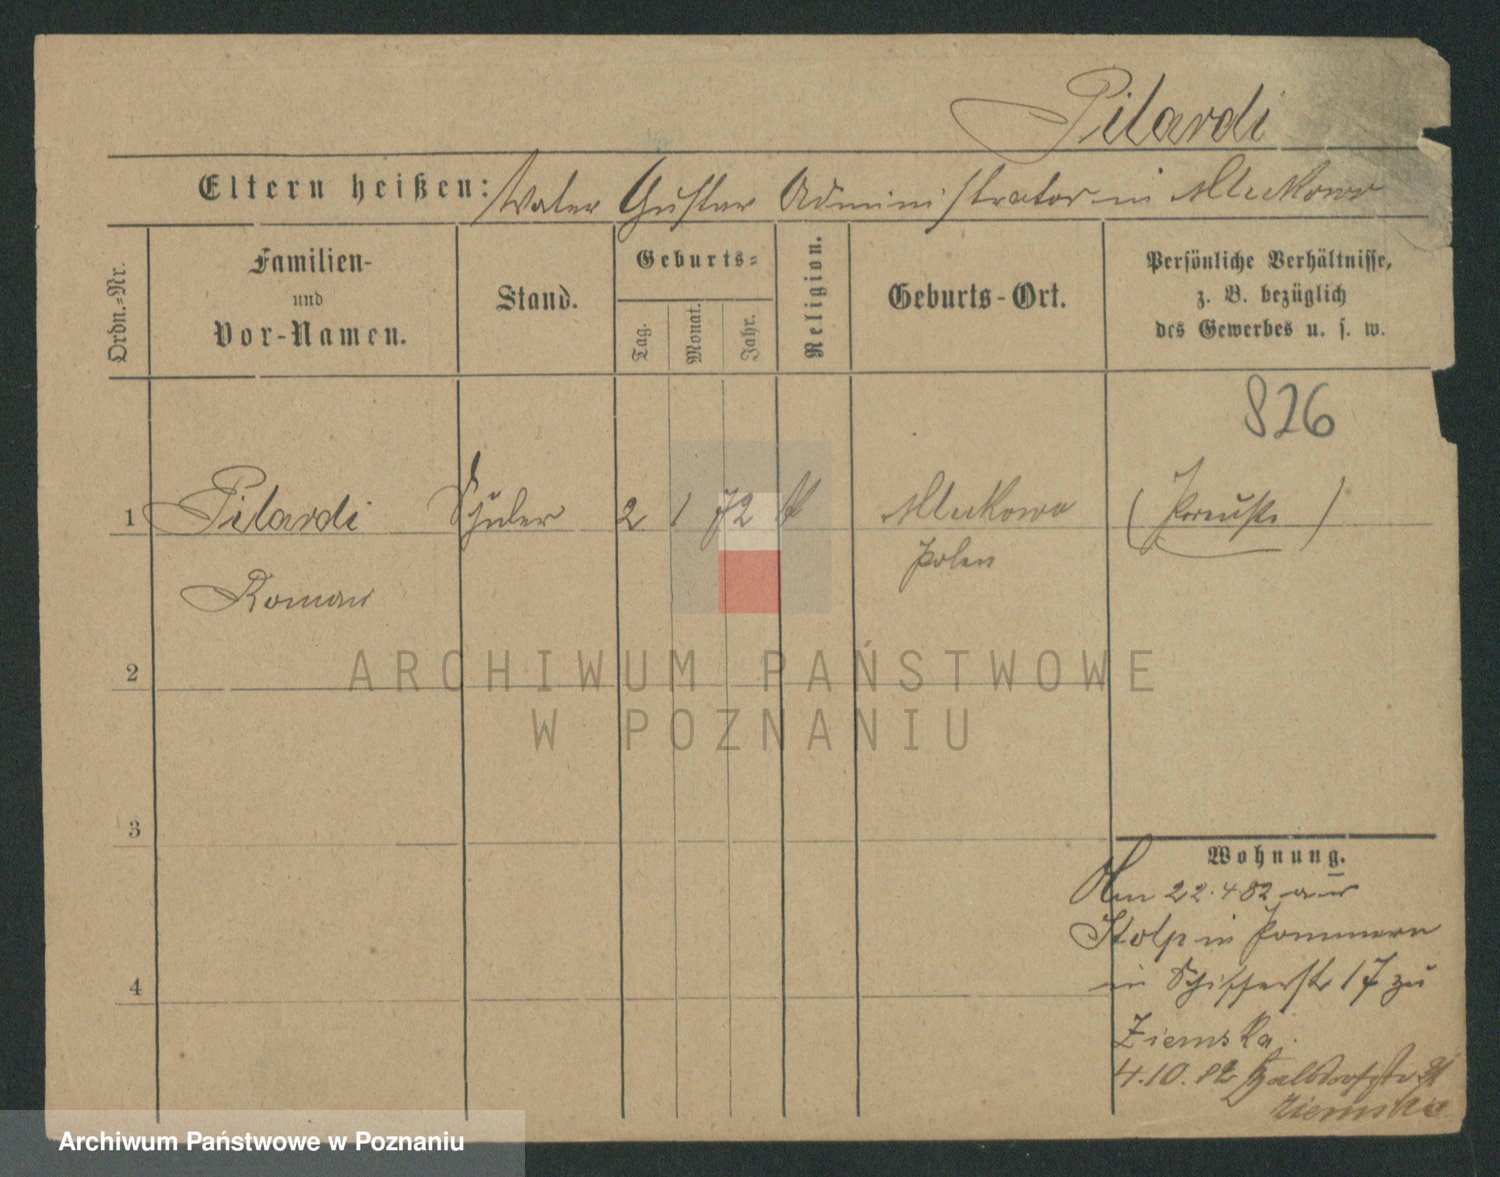 Pilardi
Eltern heißen: Vater Gustav Administrator in Mlekowo
Ordn.-Nr.
Familien-
und
Vor-Namen.
Stand.
Geburts-
Tag.
Monat.
Jahr.
Religion.
Geburts-Ort.
Persönliche Verhältnisse,
z. B. bezüglich
des Gewerbes u. s. w.
826
1 Pilardi Schüler 2 1 72 Mlekowo
Polen
Roman
2
ARCHIWUM PAŃSTWOWE
W POZNANIU
3
Wohnung.
Am 22.4 82 aus
Stolp in Pommern
in Schifferstr 17 zu
4
Ziemska.
4.10.82 Halbdorfstr
Ziemska
Archiwum Państwowe w Poznaniu